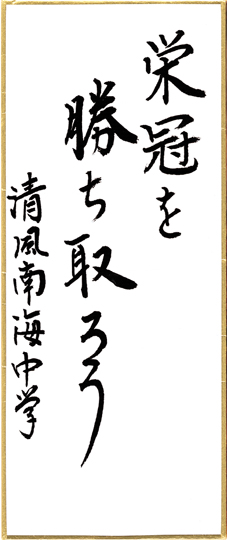 栄冠を
勝ち取ろう
清風南海中学